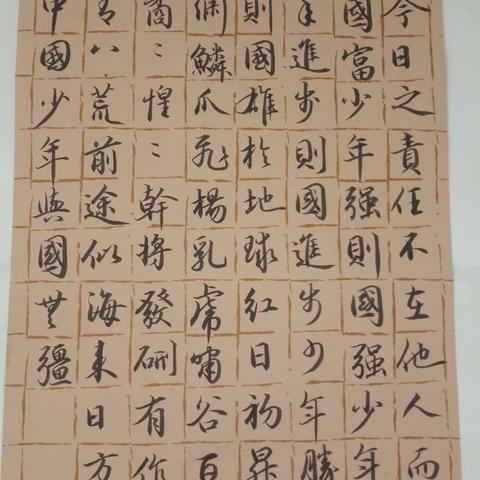 今日之責任不在他人而
國富少年强則國强少年
年進步則國進步少年勝
則國雄於地球紅日初昇
淵鱗爪飛揚乳虎嘯谷百
矞〻惶〻幹將發硎有作
有八荒前途似海来日方
中國少年與國無疆